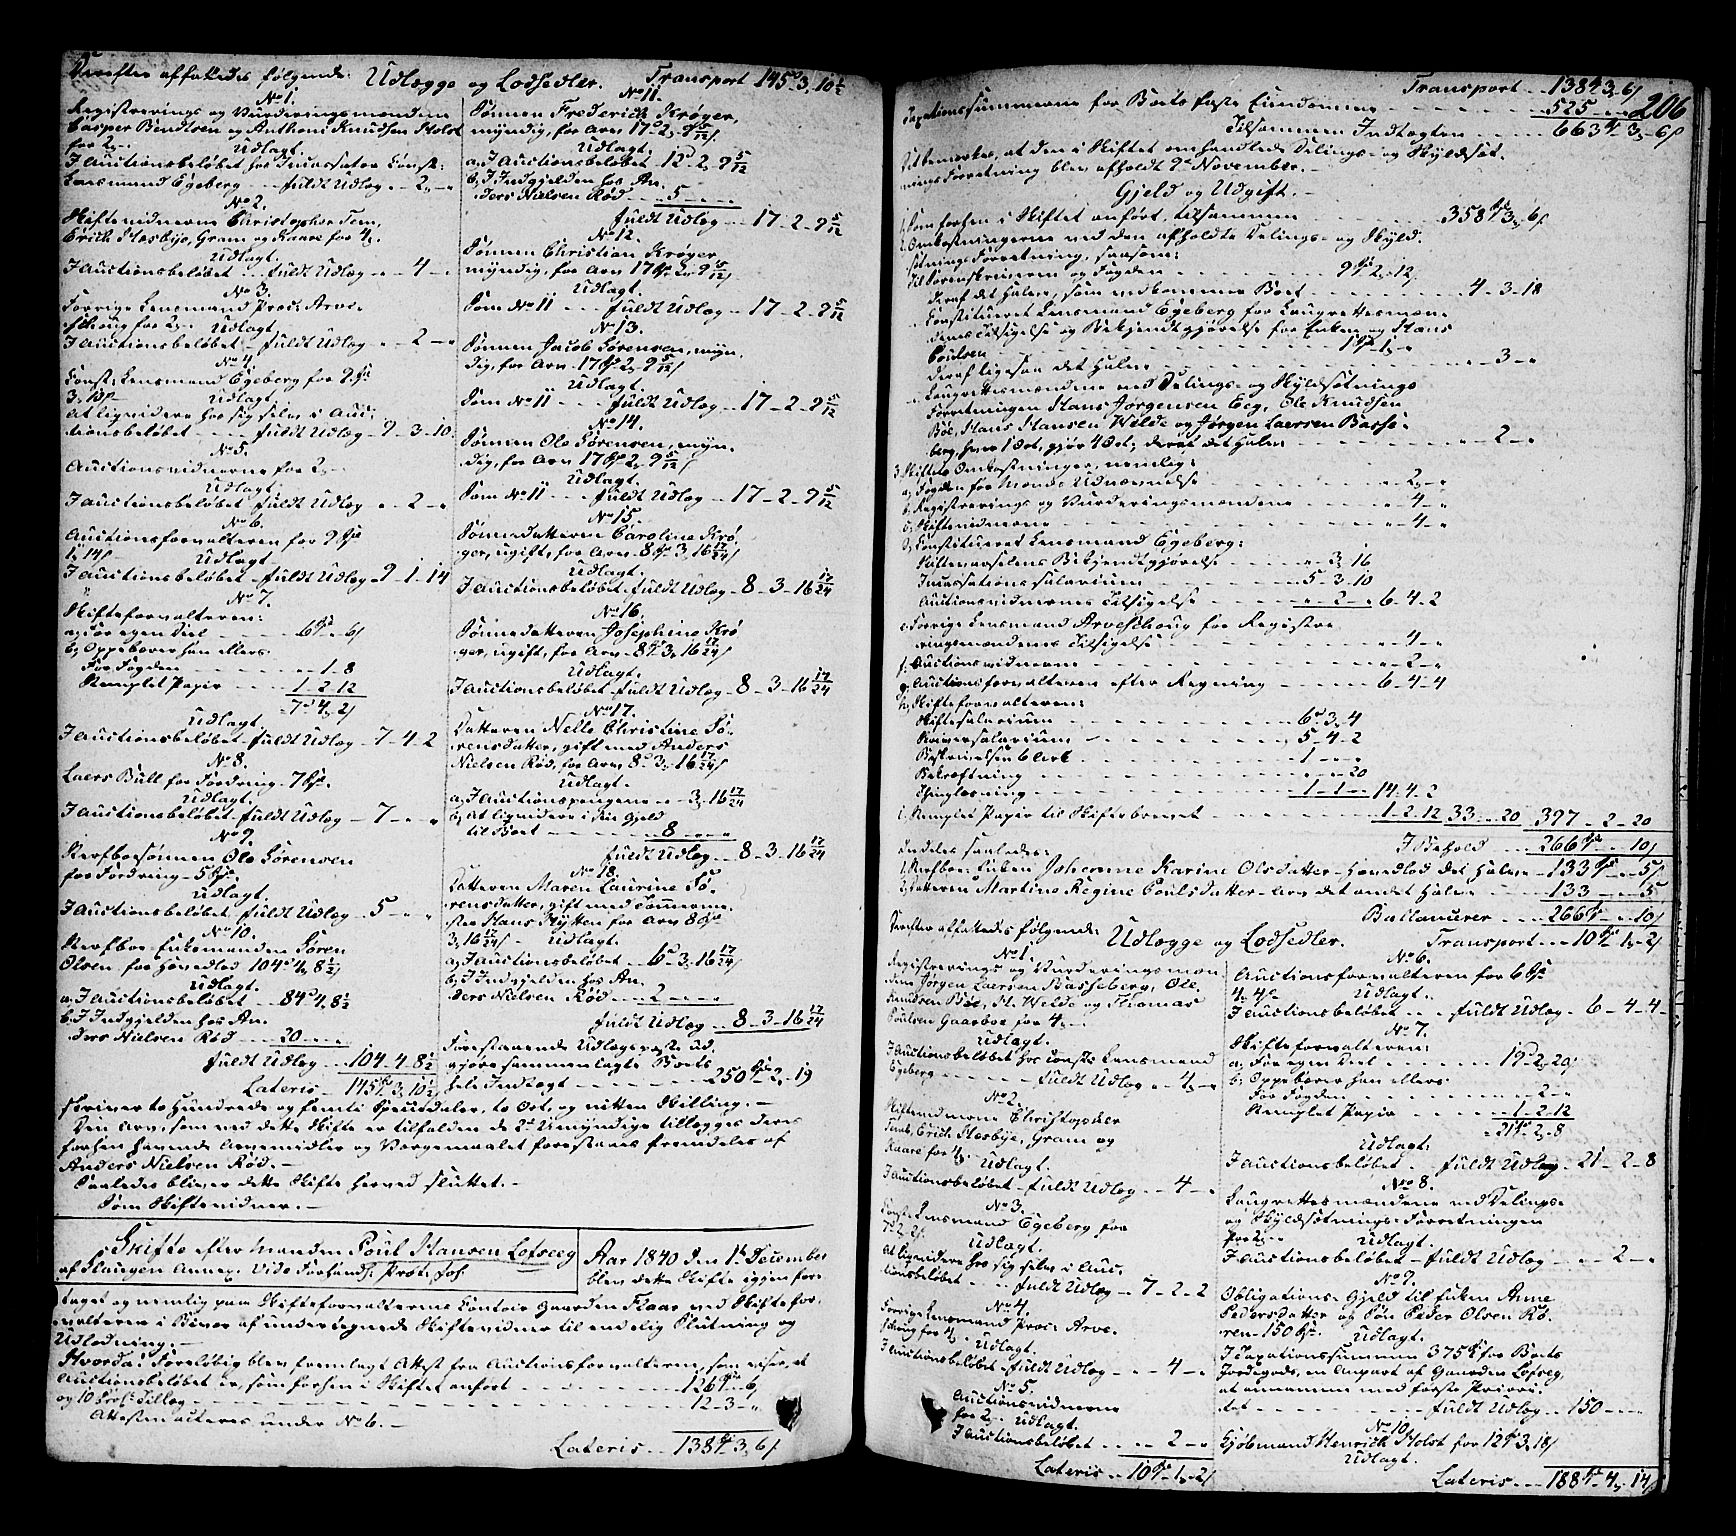 Derefter affattedes følgende: Udlægge og Lodsedler. Transport 145 3, 10½
No 1.
Registrerings og Vurderingsmændene
Casper Bendtsen og Anthoni Knudsen Holst
for 2,-
Udlagt.
I Auctionsbeløbet hos Incassator Const:
Lensmand Egeberg fuldt Udlæg - 2, -
No 2.
Skiftevidnerne Christopher
Erich Mosbye, Gram og Kaare for 4,
Udlagt.
I Auctionsbeløbet fuldt Udlæg - 4 -
No 3.
Forrige Lensmand Procs: Arve-
schoug for 2,- Udlagt.
I Auctionsbeløbet fuldt Udlæg - 2 -
No 4
Const: Lensmand Egeberg for 9
3, 10 Udlagt.
at liqvidere hos sig selv i Auc:
tionsbeløbet fuldt Udlæg 9 - 3 - 10
No 5.
Auctionsvidnerne for 2,-
Udlagt.
I Auctionsbeløbet fuldt Udlæg - 2 -
No 6.
Auctionsforvalteren for 9
1, 14 Udlagt
I Auctionsbeløbet fuldt Udlæg 9 - 1 - 14
No 7.
Skifteforvalteren:
a, For egen Deel 6 - 6
b, Oppebører han ellers
For Fogden - 1 - 8
Stemplet Papir 1 - 2 - 12
7 4, 2
Udlagt
I Auctionsbeløbet fuldt Udlæg 7 - 4 - 2
No 8.
Laers Bull for Fordring 7
Udlagt.
I Auctionsbeløbet fuldt Udlæg 7 - -
No 9.
Sterfboesønnen Ole Sørensen
for Fordring 5
Udlagt.
I Auctionsbeløbet fuldt Udlæg 5 - -
No 10.
Sterfboe Enkemanden Søren
Olsen for Hovedlod 104 4, 8½
Udlagt
a, I Auctionsbeløbet 84 4, 8½
b, I Indgjelden hos An-
ders Nielsen Rød 20
fuldt Udlæg 104 - 4 - 8½
Lateris 145 3, 10½
No 11.
Sønnen Frederich Krøger,
myndig, for Arv 17 2, 9 5/12
Udlagt.
a, I Auctionsbeløbet 12 - 2, 9 5/12
b, I Indgjelden hos An-
ders Nielsen Rød 5
fuldt Udlæg 17 - 2 - 9 5/12
No 12.
Sønnen Christian Krøger
myndig, for Arv 17 2, 9 5/12
Udlagt.
Som No 11 fuldt Udlæg 17 - 2 - 9 5/12
No 13.
Sønnen Jacob Sørensen, myn-
dig, for Arv 17 2, 9 5/12
Udlagt.
Som No 11 fuldt Udlæg 17 - 2 - 9 5/12
No 14.
Sønnen Ole Sørensen, myn-
dig, for Arv 17 2, 9 5/12
Udlagt.
Som No 11 fuldt Udlæg 17 - 2 - 9 5/12
No 15.
Sønnedatteren Caroline Krø-
ger, ugift, for Arv 8 3, 16 17/24
Udlagt.
I Auctionsbeløbet fuldt Udlæg 8 - 3 - 16 17/24
No 16.
Sønnedatteren Josephine Krø
ger, ugift, for Arv 8 3, 16 17/24
Udlagt.
I Auctionsbeløbet fuldt Udlæg 8 - 3 - 16 17/24
No 17.
Datteren Nelle Christine Sø-
rensdatter, gift med Anders
Nielsen Rød, for Arv 8 3, 16 17/24
Udlagt.
a, I Auctionspengene - 3, 16 17/24
b, at liqvidere i sin Gjeld
til Boet 8
fuldt Udlæg 8 - 3 - 16 17/24
No 18.
Datteren Maren Laurine Sø-
rensdatter, gift med Tømmerme-
ster Hans Hytten for Arv 8
3, 16 17/24 Udlagt.
a, I Auctionsbeløbet 6 - 3, 16 17/24
b, I Indgjelden hos An-
ders Nielsen Rød 2
fuldt Udlæg 8 - 3 - 16 17/24
Forestaaende Udlægge ud-
gjøre sammenlagte Boets
hele Indtægt 250 - 2, 19
skriver to Hundrede og femti Speciedaler, to Ort, og nitten Skilling.
Den Arv, som ved dette Skifte er tilfalden de 2de Umyndige tillægges deres
forhen havende Arvemidler og Værgemaalet forestaaes fremdeles af
Anders Nielsen Rød.
Saaledes bliver dette Skifte herved sluttet.
Som Skiftevidner.
Skifte efter Manden Poul Hansen Lofseeg
af Slaugen Annex. Vide Forhands: Prot: Fol:
Aar 1840 den 1te December
blev dette Skifte igjen fore-
taget og nemlig paa Skifteforvalterens Contoir Gaarden Kaar ved Skiftefor-
valteren i Biværelse af undertegnede Skiftevidner til endelig Slutning og
Udlodning.
Hvorda: Foreløbig blev fremlagt Attest fra Auctionsforvalteren, som viser, at
Auctionsbeløbet er, som forhen i Skiftet anført 126 - 6
og 10 Proc: Tillæg 12 - 3 -
Attesten acteres under No 6.
Lateris 138 3, 6
206
Transport 138 3, 6
Taxationssummerne for Boets faste Eiendomme 525
Tilsammen Indtægten 663 3, 6
Bemærkes, at den i Skiftet omhandlede Delings- og Skyldsæt-
nings Forretning blev afholdt 9de November.
Gjeld og Udgift.
1, Som forhen i Skiftet anført, tilsammen 358 3, 6
2, Omkostningerne ved den afholdte Delings- og Skyld-
sætnings Forretning, saasom:
Til Sorenskriveren og Fogden 9 2, 12
deraf det Halve, som vedkommer Boet 4 - 3 - 18
Constitueret Lensmand Egeberg for Laugrettesmæn-
denes Tilsigelse og Bekjendtgjørelse for Enken og Hans
Poulsen 1 1,
deraf ligesom det Halve - 3 -
Laugrettesmændene ved Delings- og Skyldsætnings
Forretningen Hans Jørgensen Eeg, Ole Knudsen
Bøe, Hans Hansen Welde og Jørgen Laersen Basse-
berg, hver 1 Ort, gjør 4 Ort; deraf det Halve - 2 -
3, Skiftets Omkostninger, nemlig:
a, Fogden for Mænds Udnævnelse - 2 -
b, Registrerings og Vurderingsmændene - 4 -
c, Skiftevidnerne - 4 -
d, Constitueret Lensmand Egeberg:
Skiftevarselens Bekjendtgjørelse - 3, 16
Incassationssalarium 5 - 3 - 10
Auctionsvidnernes Tilsigelse - 2 - 6 - 4 - 2
e, Forrige Lensmand Arveschoug for Registre-
ringsmændenes Tilsigelse - 4 -
f, Auctionsvidnerne - 2 -
g, Auctionsforvalteren efter Regning 6 - 4 - 4
h, Skifteforvalteren:
Skiftesalarium 6 3, 4
Skriversalarium 5 - 4 - 2
Beskrivelsen 6 Ark 1 -
Bekræftning - 20
Thinglæsning 1 - 1 - 14 - 4 - 2
i, Stemplet Papir til Skiftebrevet 1 - 2 - 12 33 - 20 397 - 2 - 20
I Behold 266 - 10
Indeles saaledes:
1, Sterfboe Enken Johanne Karine Olsdatter Hovedlod det Halve 133 - 5
2, Datteren Martine Regine Poulsdatter Arv det andet Halve 133 - 5
Ballancerer 266 - 10
Derefter affattedes følgende: Udlægge og Lodsedler. Transport 10 1, 2
No 1.
Registrerings og Vurderingsmæn-
dene Jørgen Laersen Basseberg, Ole
Knudsen Bøe, H. Welde og Thomas
Poulsen Gaasboe for 4,-
Udlagt.
I Auctionsbeløbet hos Const: Lensmand
Egeberg fuldt Udlæg - 4 -
No 2.
Skiftevidnerne Christopher
Erich Mosbye, Gram og
Kaare for 4, Udlagt.
I Auctionsbeløbet fuldt Udlæg - 4 -
No 3.
Const: Lensmand Egeberg for
7 2, 2 Udlagt.
at liqvidere hos sig selv i Auc-
tionsbeløbet fuldt Udlæg 7 - 2 - 2
No 4.
Forrige Lensmand Procs: Arve-
schoug for 4, Udlagt.
I Auctionsbeløbet fuldt Udlæg - 4 -
No 5.
Auctionsvidnerne
for 2,- Udlagt.
I Auctionsbeløbet - 2 -
Lateris 10 1, 2
No 6.
Auctionsforvalteren for 6
4, 4 Udlagt.
I Auctionsbeløbet fuldt Udlæg 6 - 4 - 4
No 7.
Skifteforvalteren:
a, For egen Deel 19 2, 20
b, Oppebører han ellers
For Fogden - 2 -
Stemplet Papir 1 - 2 - 12
21 - 2 - 8
Udlagt.
I Auctionsbeløbet fuldt Udlæg 21 - 2 - 8
No 8.
Laugrettesmændene ved Delings-
og Skyldsætnings-Forretningen
for 2,- Udlagt.
I Auctionsbeløbet fuldt Udlæg - 2 -
No 9.
Obligations-Gjeld til Enken Anne
Pedersdatter og Søn Peder Olsen Rø-
ren 150 Udlagt.
I Taxationssummen 375 for Boets
Jordegods, en Anpart af Gaarden Lofseg,
at annamme med første Priori-
tet fuldt Udlæg 150
No 10.
Kjøbmand Henrich Holst for 129 3, 18
Udlagt.
Lateris 188 4, 14